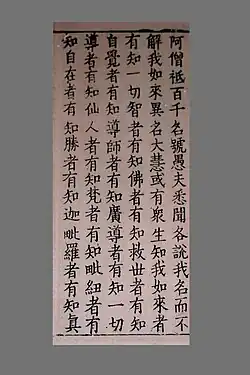 阿僧祗百千名號愚夫悉聞各說我名而不
解我如來異名大慧或有衆生知我如來者
有知一切智者有知佛者有知救世者有知
自覺者有知導師者有知廣導者有知一切
導者有知仙人者有知梵者有知毗紐者有
知自在者有知勝者有知迦毗羅者有知真